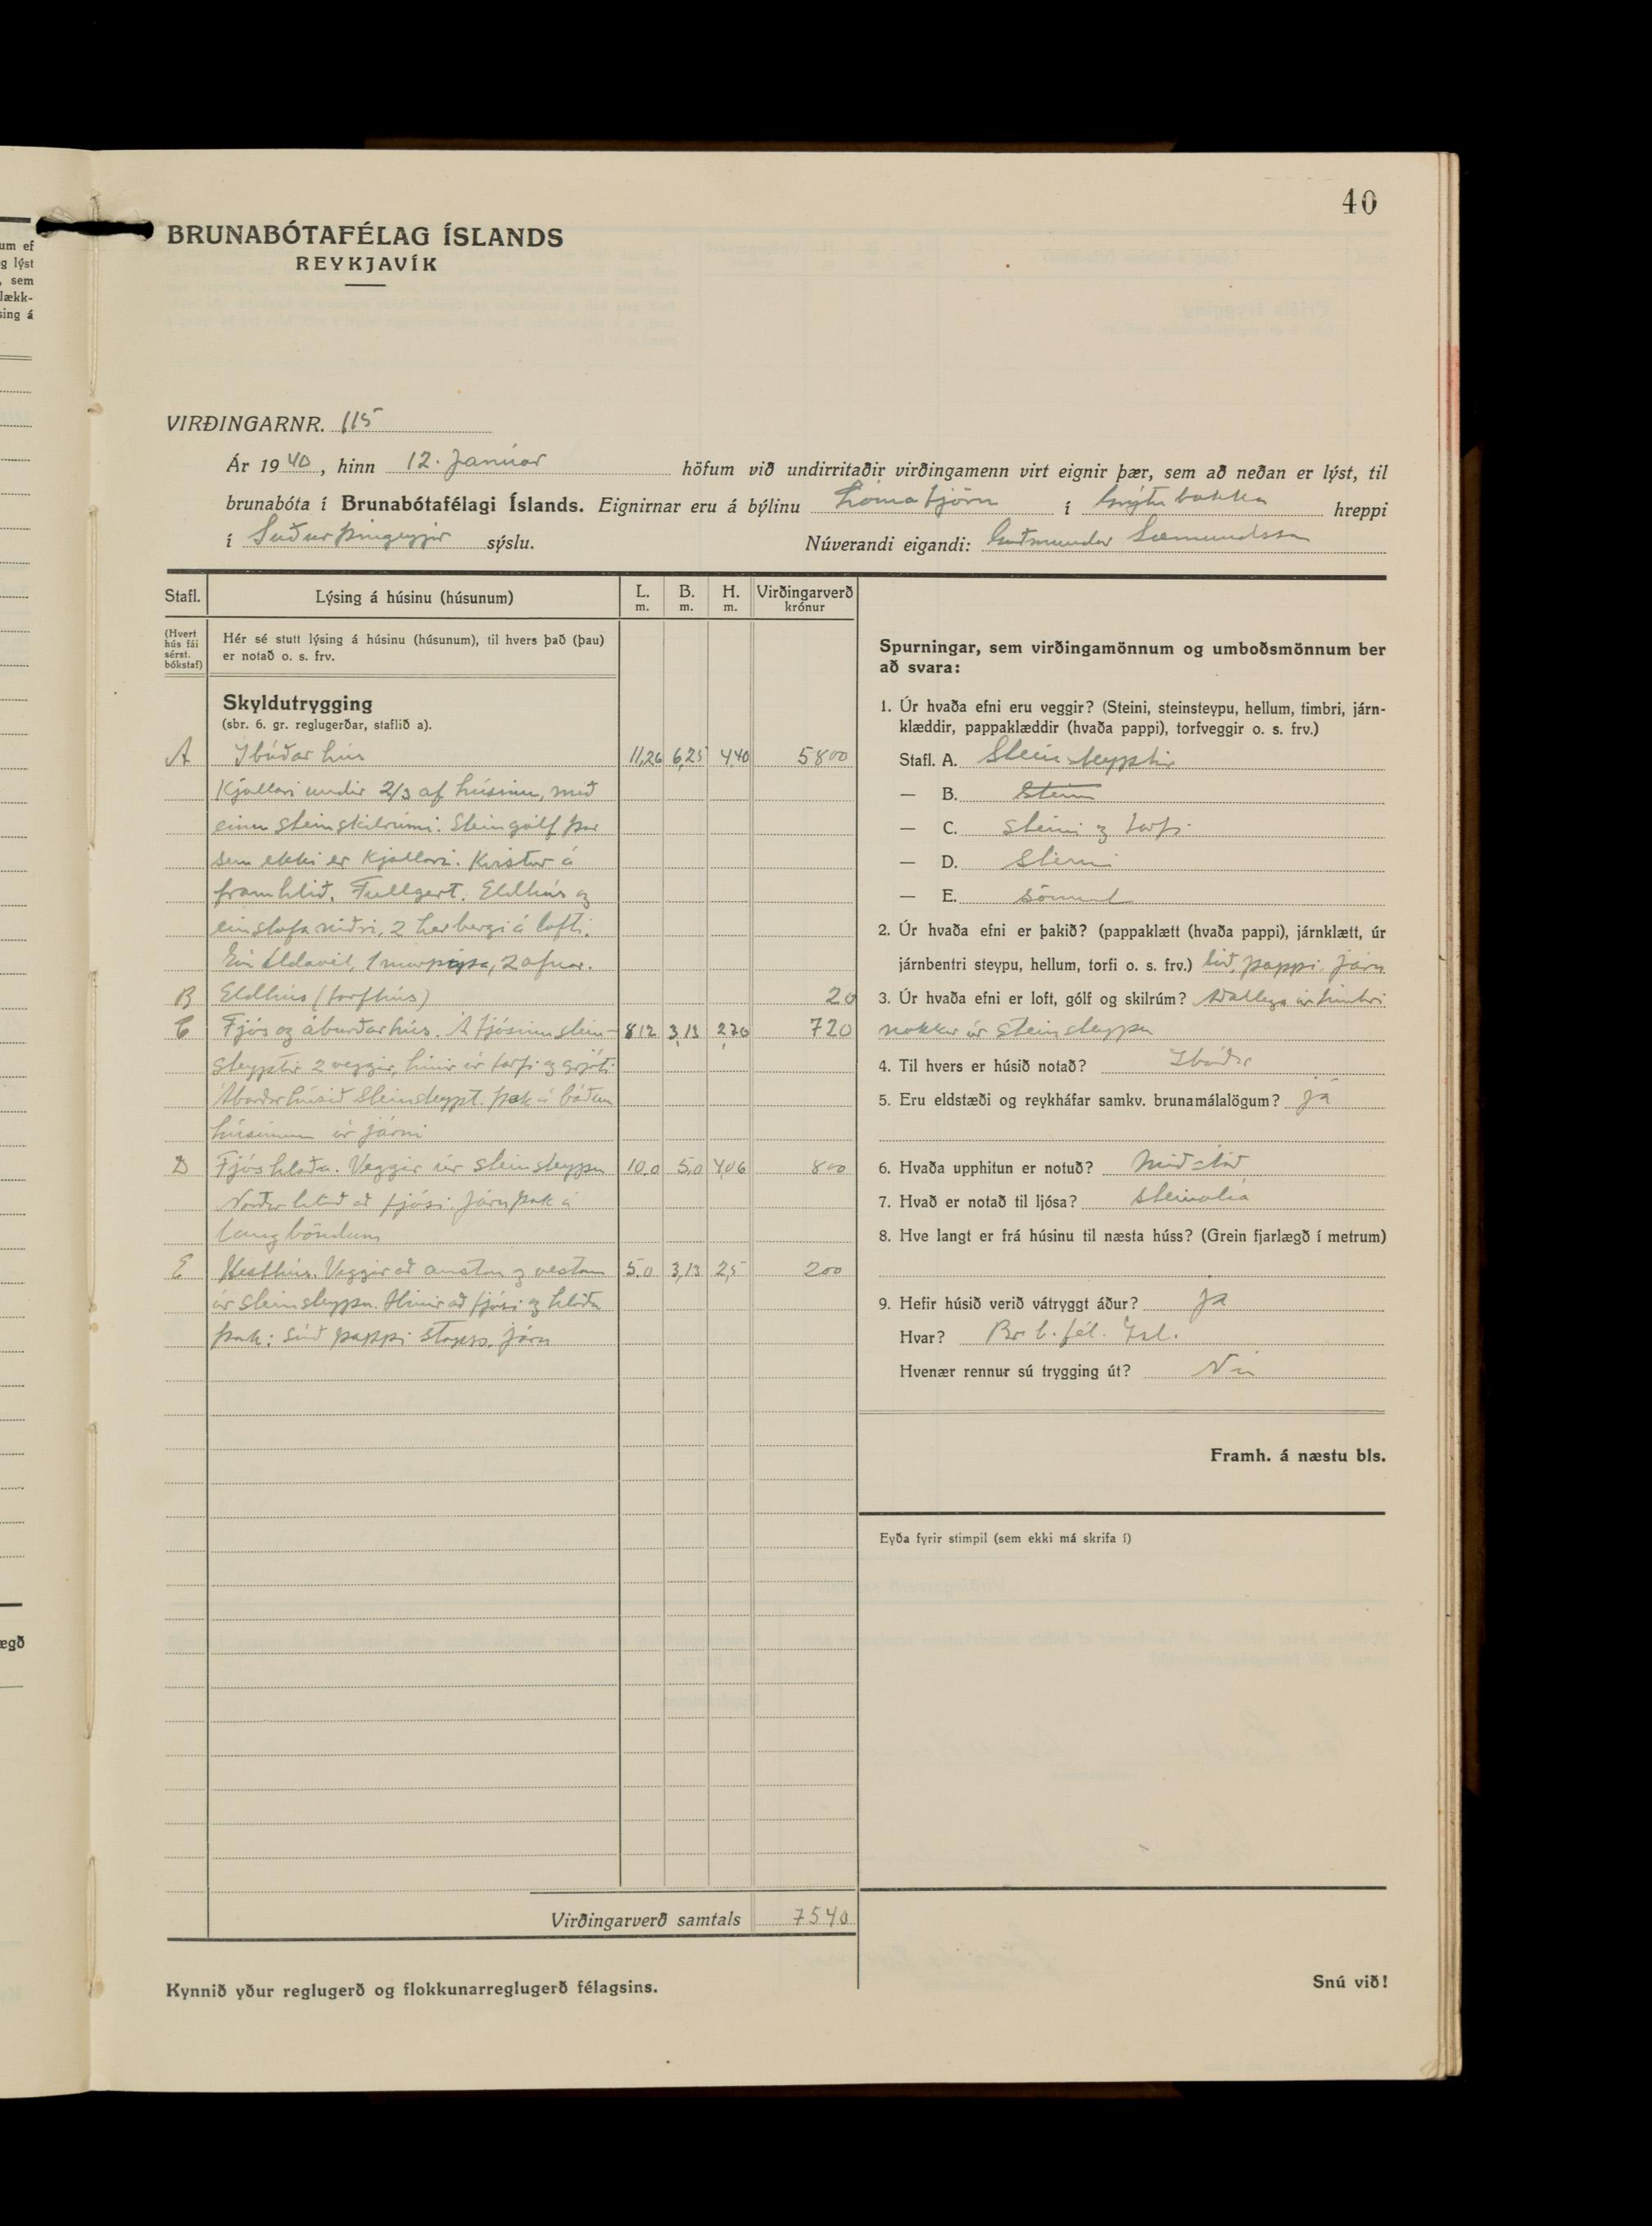 40
um ef
g lýst
, sem
lækk-
sing á
ægð
BRUNABÓTAFÉLAG ÍSLANDS
REYKJAVÍK
VIRÐINGARNR. 115
Ár 1940, hinn 12. Janúar höfum við undirritaðir virðingamenn virt eignir þær, sem að neðan er lýst, til
brunabóta í Brunabótafélagi Íslands. Eignirnar eru á býlinu Lómatjörn í Grýtubakka hreppi
í Suður þingeyjar sýslu. Núverandi eigandi: Guðmundur Sæmundsson
Stafl. Lýsing á húsinu (húsunum) L. m. B. m. H. m. Virðingarverð krónur
(Hvert hús fái sérst. bókstaf)
Hér sé stutt lýsing á húsinu (húsunum), til hvers það (þau)
er notað o. s. frv.
Skyldutrygging
(sbr. 6. gr. reglugerðar, staflið a).
A Íbúðar hús 11,26 6,25 4,40 5800
Kjallari undir 2/3 af húsinu, með
einu steinskilrúmi. Steingólf þar
sem ekki er Kjallari. Kvistur á
framhlið. Fullgert. Eldhús og
ein stofa niðri, 2 herbergi á lofti.
Ein eldavél, 1 murpípa, 2 ofnar.
B Eldhús (torfhús) 20
C Fjós og áburðarhús. Á fjósinu stein- 8,12 3,13 2,70 720
steyptir 2 veggir, hinir úr torfi og grjóti
Áburðarhúsið Steinsteypt. Þak á báðum
húsunum úr járni
D Fjóshlaða. Veggir úr steinsteypu 10,0 5,0 4,06 800
Norðurhlið að fjósi. Járnþak á
langböndum
E Hesthús. Veggir að austan og vestan 5,0 3,13 2,5 200
úr steinsteypu. Hinir að fjósi og hlöðu
Þak: Súð pappi stopp. járn
Virðingarverð samtals 7540
Kynnið yður reglugerð og flokkunarreglugerð félagsins.
Spurningar, sem virðingamönnum og umboðsmönnum ber
að svara:
1. Úr hvaða efni eru veggir? (Steini, steinsteypu, hellum, timbri, járn-
klæddir, pappaklæddir (hvaða pappi), torfveggir o. s. frv.)
Stafl. A. Steinsteyptir
— B. Steini
— C. Steini og torfi
— D. Steini
— E. Sömul
2. Úr hvaða efni er þakið? (pappaklætt (hvaða pappi), járnklætt, úr
járnbentri steypu, hellum, torfi o. s. frv.) súð, pappi. Járn
3. Úr hvaða efni er loft, gólf og skilrúm? Aðallega úr timbri
nokkur úr steinsteypu
4. Til hvers er húsið notað? Íbúðar
5. Eru eldstæði og reykháfar samkv. brunamálalögum? já
6. Hvaða upphitun er notuð? Miðstöð
7. Hvað er notað til ljósa? Steinolía
8. Hve langt er frá húsinu til næsta húss? (Grein fjarlægð í metrum)
9. Hefir húsið verið vátryggt áður? já
Hvar? Br. b. fél. Ísl.
Hvenær rennur sú trygging út? Nú
Framh. á næstu bls.
Eyða fyrir stimpil (sem ekki má skrifa í)
Snú við!